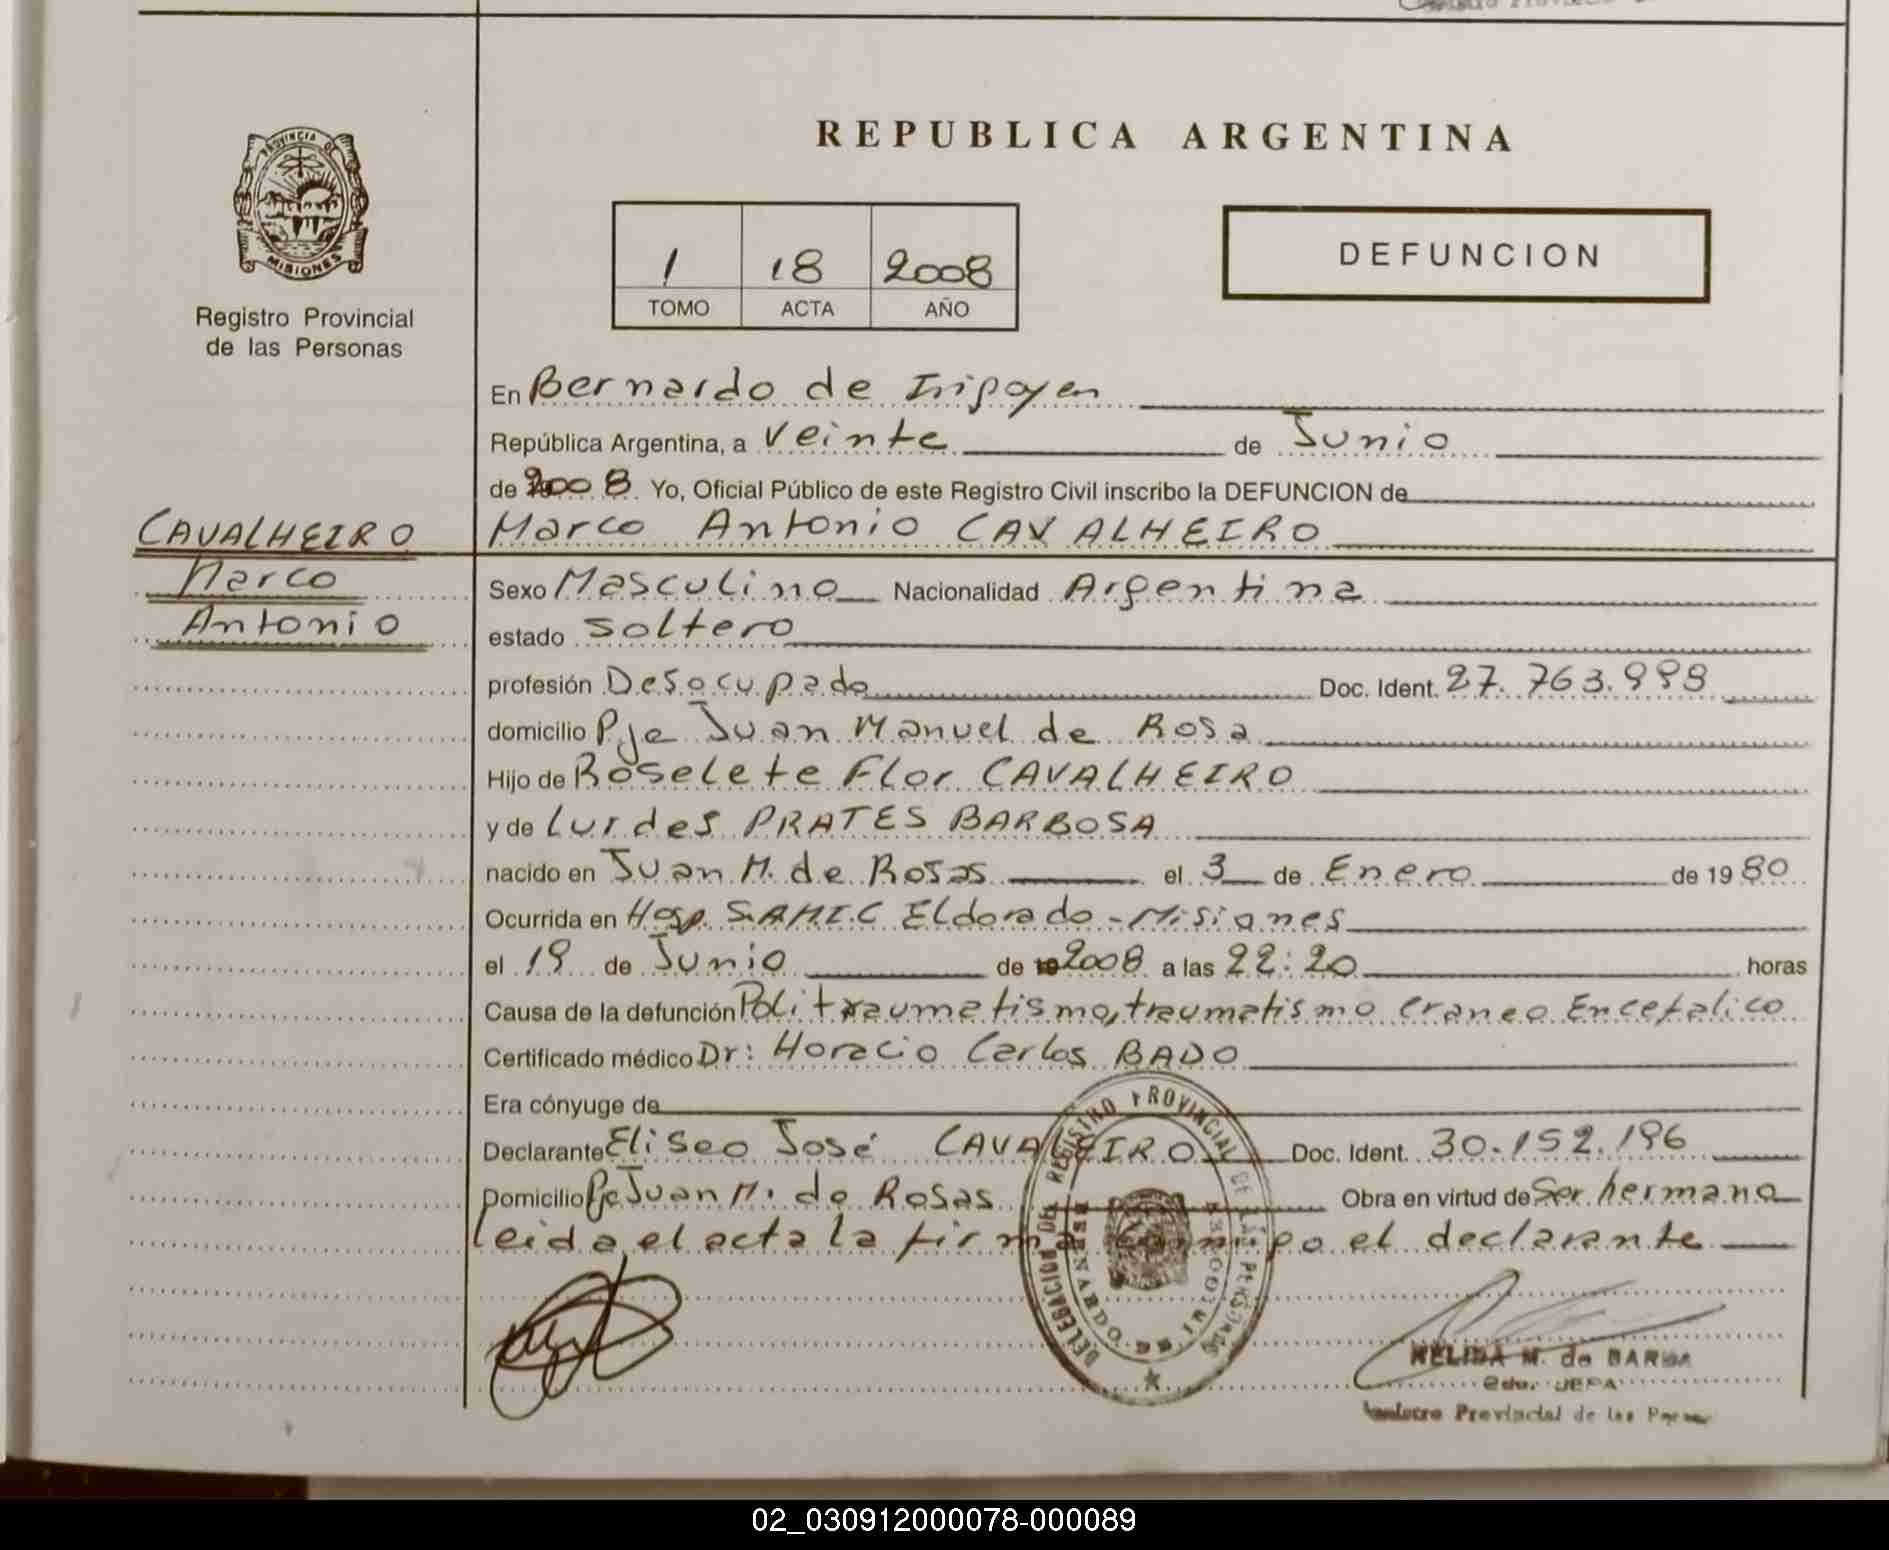 PROVINCIA DE
MISIONES
Registro Provincial
de las Personas
REPUBLICA ARGENTINA
1 18 2008
TOMO ACTA AÑO
DEFUNCION
En Bernardo de Irigoyen
República Argentina, a Veinte de Junio
de 2008. Yo, Oficial Público de este Registro Civil inscribo la DEFUNCION de
CAVALHEIRO
Marco
Antonio
Marco Antonio CAVALHEIRO
Sexo Masculino Nacionalidad Argentina
estado Soltero
profesión Desocupado Doc. Ident. 27.763.998
domicilio Pje Juan Manuel de Rosa
Hijo de Roselete Flor CAVALHEIRO
y de Lurdes PRATES BARBOSA
nacido en Juan M. de Rosas el 3 de Enero de 1980
Ocurrida en Hosp S.A.M.I.C Eldorado - Misiones
el 19 de Junio de 2008 a las 22:20 horas
Causa de la defunción Politraumatismo, traumatismo craneo Encefalico
Certificado médico Dr: Horacio Carlos BADO
Era cónyuge de
Declarante Eliseo José CAVALEIRO Doc. Ident. 30.152.196
Domicilio Pje Juan M. de Rosas Obra en virtud de Ser hermano
leida el acta la firma conmigo el declarante
DELEGACION DEL REGISTRO PROVINCIAL DE LAS PERSONAS
BERNARDO DE IRIGOYEN
NELIDA M. de BARDA
Registro Provincial de las
02_030912000078-000089